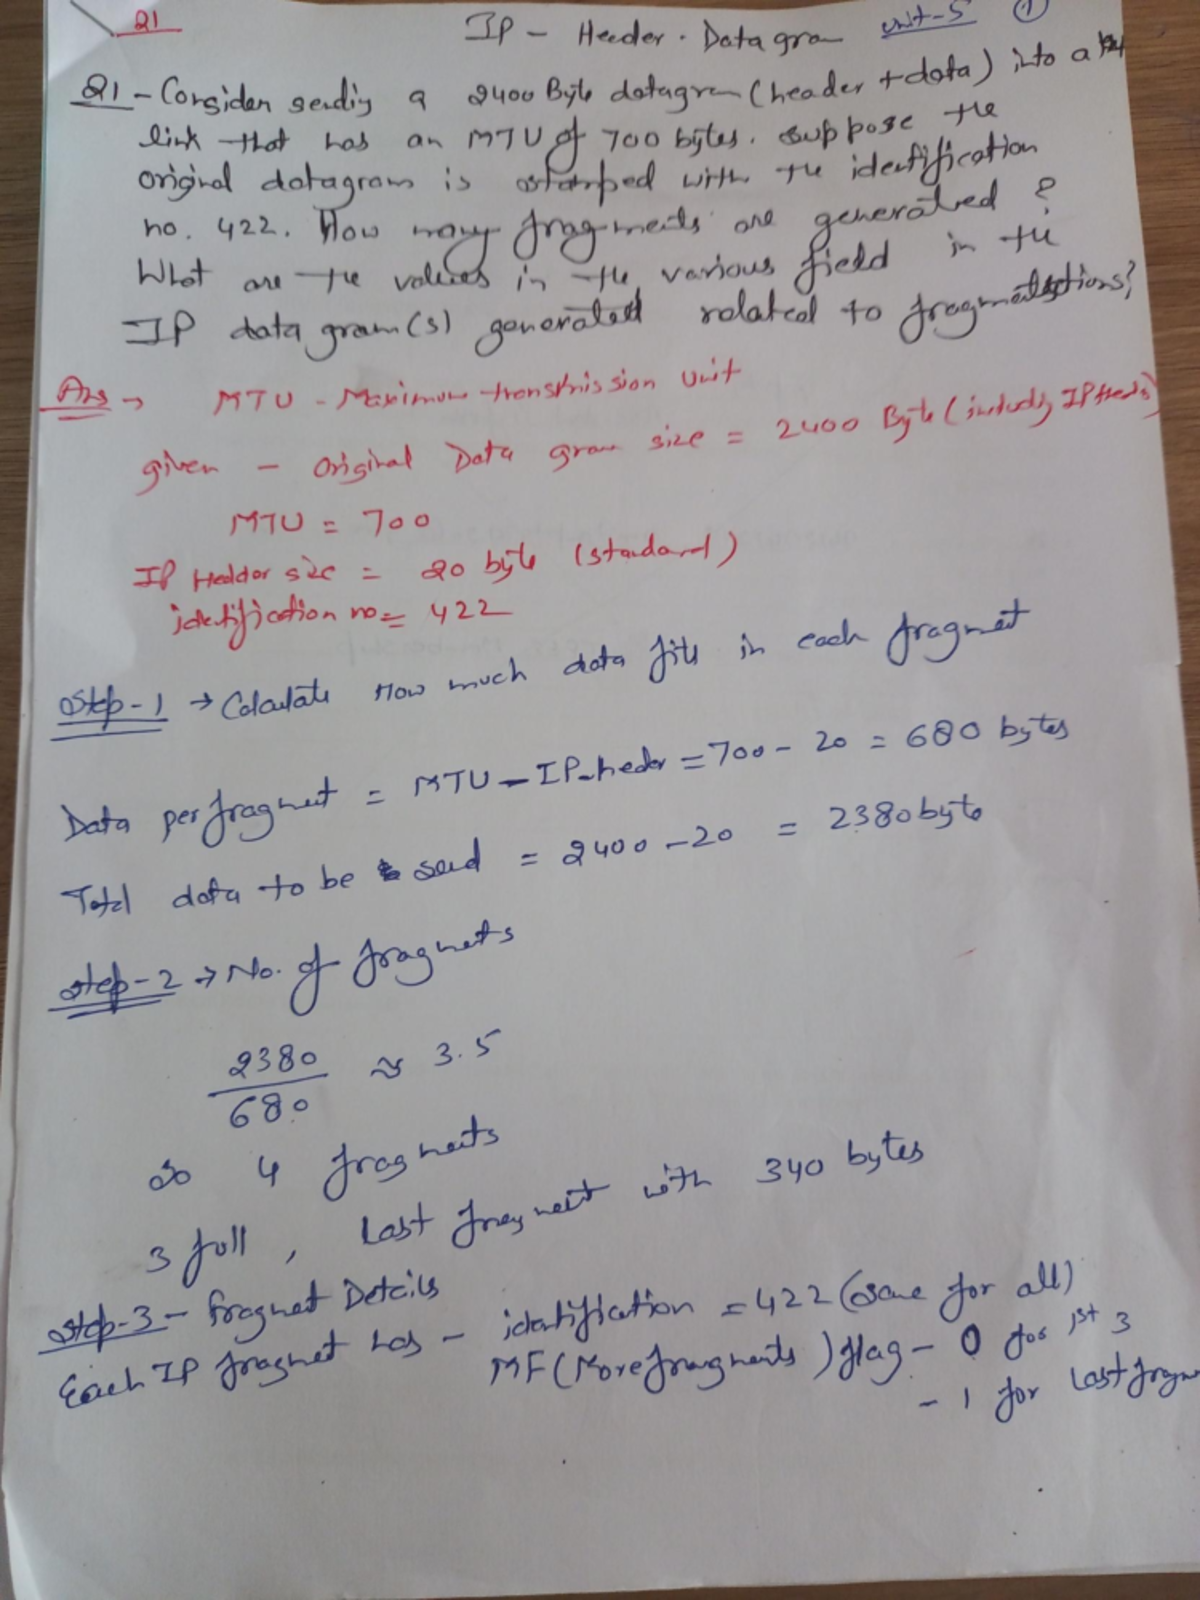 Q1
IP - Header . Data gram unit-5 1
Q1 - Consider sendig a 2400 Byte datagram (header + data) into a
link that has an MTU of 700 bytes. suppose the
original datagram is stamped with the identification
no. 422. How many fragments are generated ?
What are the values in the various field in the
IP data gram(s) generated related to fragmentations?
Ans → MTU - Maximum transmission Unit
given - Original Data gram size = 2400 Byte (includig IP Header)
MTU = 700
IP Headdor size = 20 byte (standard)
identification no = 422
Step-1 → Calculate How much data fits in each fragmet
Data per fragmet = MTU - IP-heder = 700 - 20 = 680 bytes
Total data to be send = 2400 - 20 = 2380 byte
step-2 → No. of fragmets
2380
≈ 3.5
680
so 4 fragments
3 full , Last fragment with 340 bytes
step-3 - fragmet Details
Each IP fragmet has - identification = 422 (same for all)
MF (More fragments) flag - 0 for 1st 3
- 1 for Last fragm